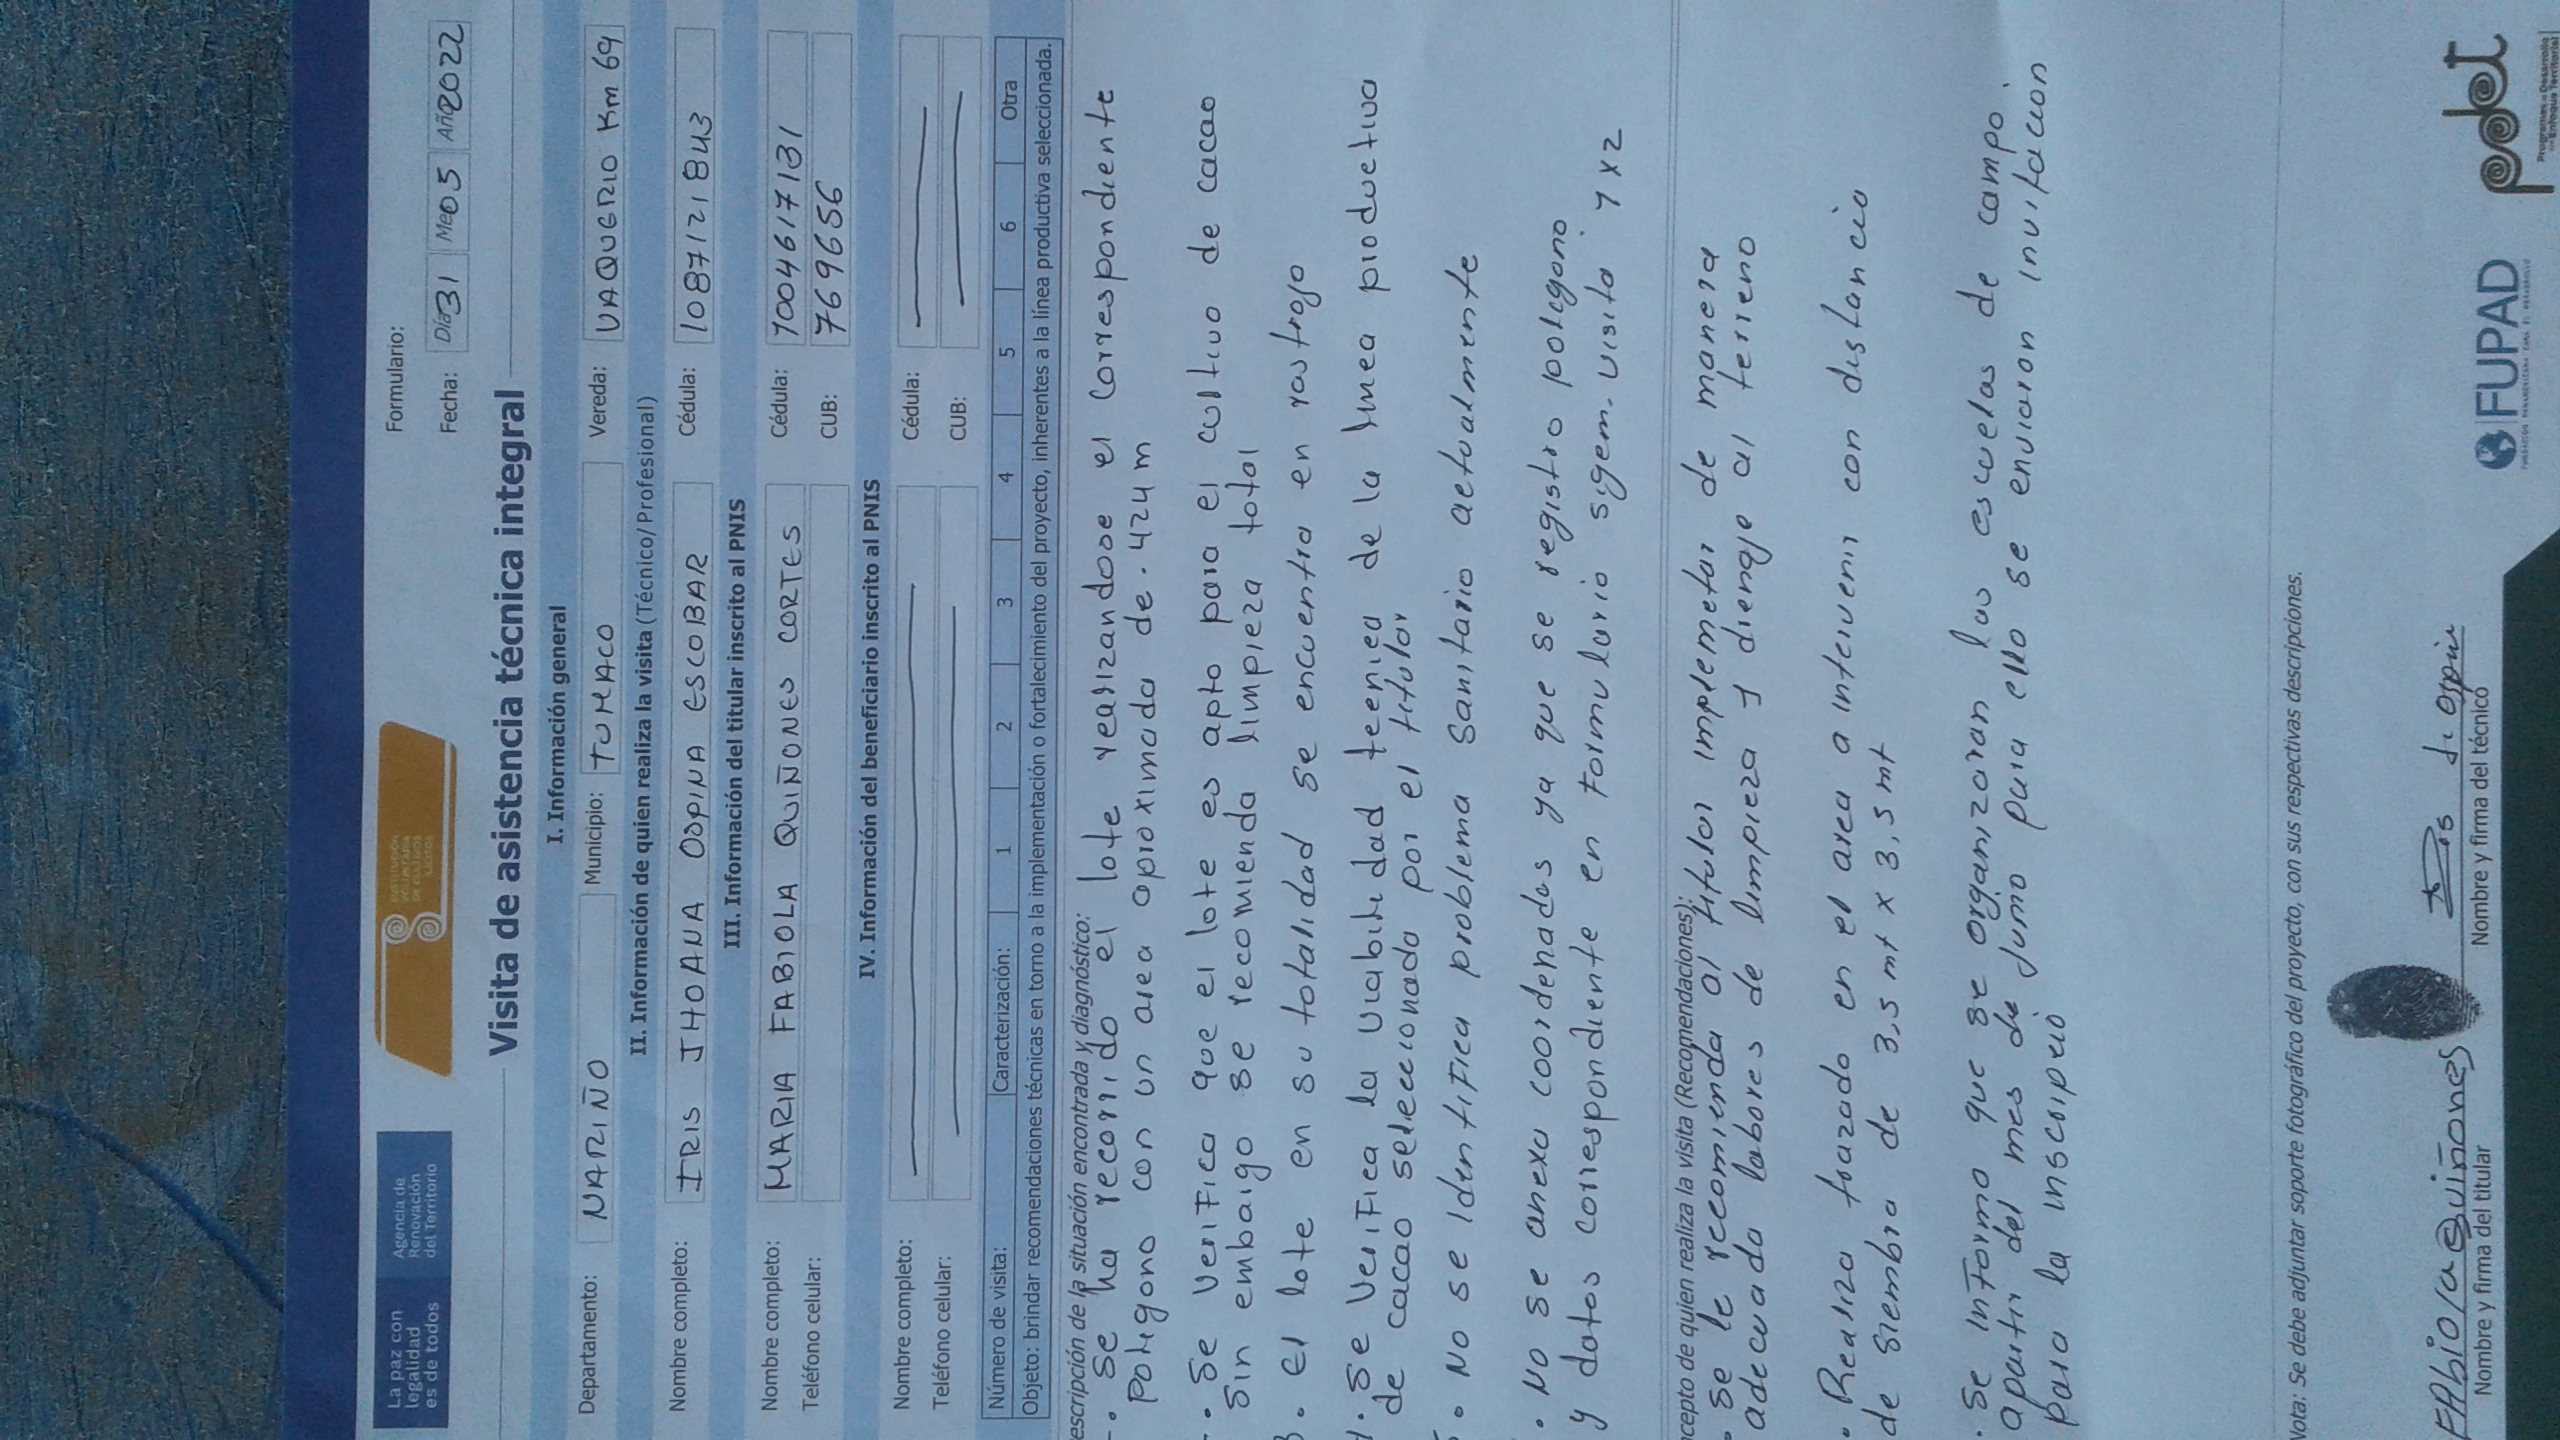 La paz con
legalidad
es de todos
Agencia de
Renovación
del Territorio
SUSTITUCIÓN
VOLUNTARIA
DE CULTIVOS
ILÍCITOS
Formulario:
Fecha: Día 31 Me 05 Añ 2022
Visita de asistencia técnica integral
I. Información general
Departamento: NARIÑO Municipio: TUMACO Vereda: VAQUERIO Km 69
II. Información de quien realiza la visita (Técnico/Profesional)
Nombre completo: IRIS JHOANA OSPINA ESCOBAR Cédula: 1087121843
III. Información del titular inscrito al PNIS
Nombre completo: MARIA FABIOLA QUIÑONES CORTES Cédula: 1004617131
Teléfono celular: CUB: 769656
IV. Información del beneficiario inscrito al PNIS
Nombre completo: Cédula:
Teléfono celular: CUB:
Número de visita: Caracterización: 1 2 3 4 5 6 Otra
Objeto: brindar recomendaciones técnicas en torno a la implementación o fortalecimiento del proyecto, inherentes a la línea productiva seleccionada.
escripción de la situación encontrada y diagnóstico:
- . Se ha recorrido el lote realizandose el correspondiente
poligono con un area aproximada de . 424 m
- . Se Verifica que el lote es apto para el cultivo de cacao
Sin embargo se recomienda limpieza total
3 . El lote en su totalidad se encuentra en rastrojo
. Se Verifica la viabilidad tecnica de la linea productiva
de cacao seleccionada por el titular
. No se Identifica problema sanitario actualmente
. No se anexa coordenadas ya que se registro poligono
y datos correspondiente en formulario sigem. visita 1 x 2
ncepto de quien realiza la visita (Recomendaciones):
. Se le recomienda al titular implemetar de manera
adecuada labores de limpieza y drenaje al terreno
. Realiza trazado en el area a intervenir con distancia
de siembra de 3,5 mt x 3,5 mt
. Se informo que se organizaran las escuelas de campo
apartir del mes de Junio para ello se envian invitacion
para la inscripcio
Nota: Se debe adjuntar soporte fotográfico del proyecto, con sus respectivas descripciones.
FAbiola Quiñones
Nombre y firma del titular
Nombre y firma del técnico
FUPAD
pdet